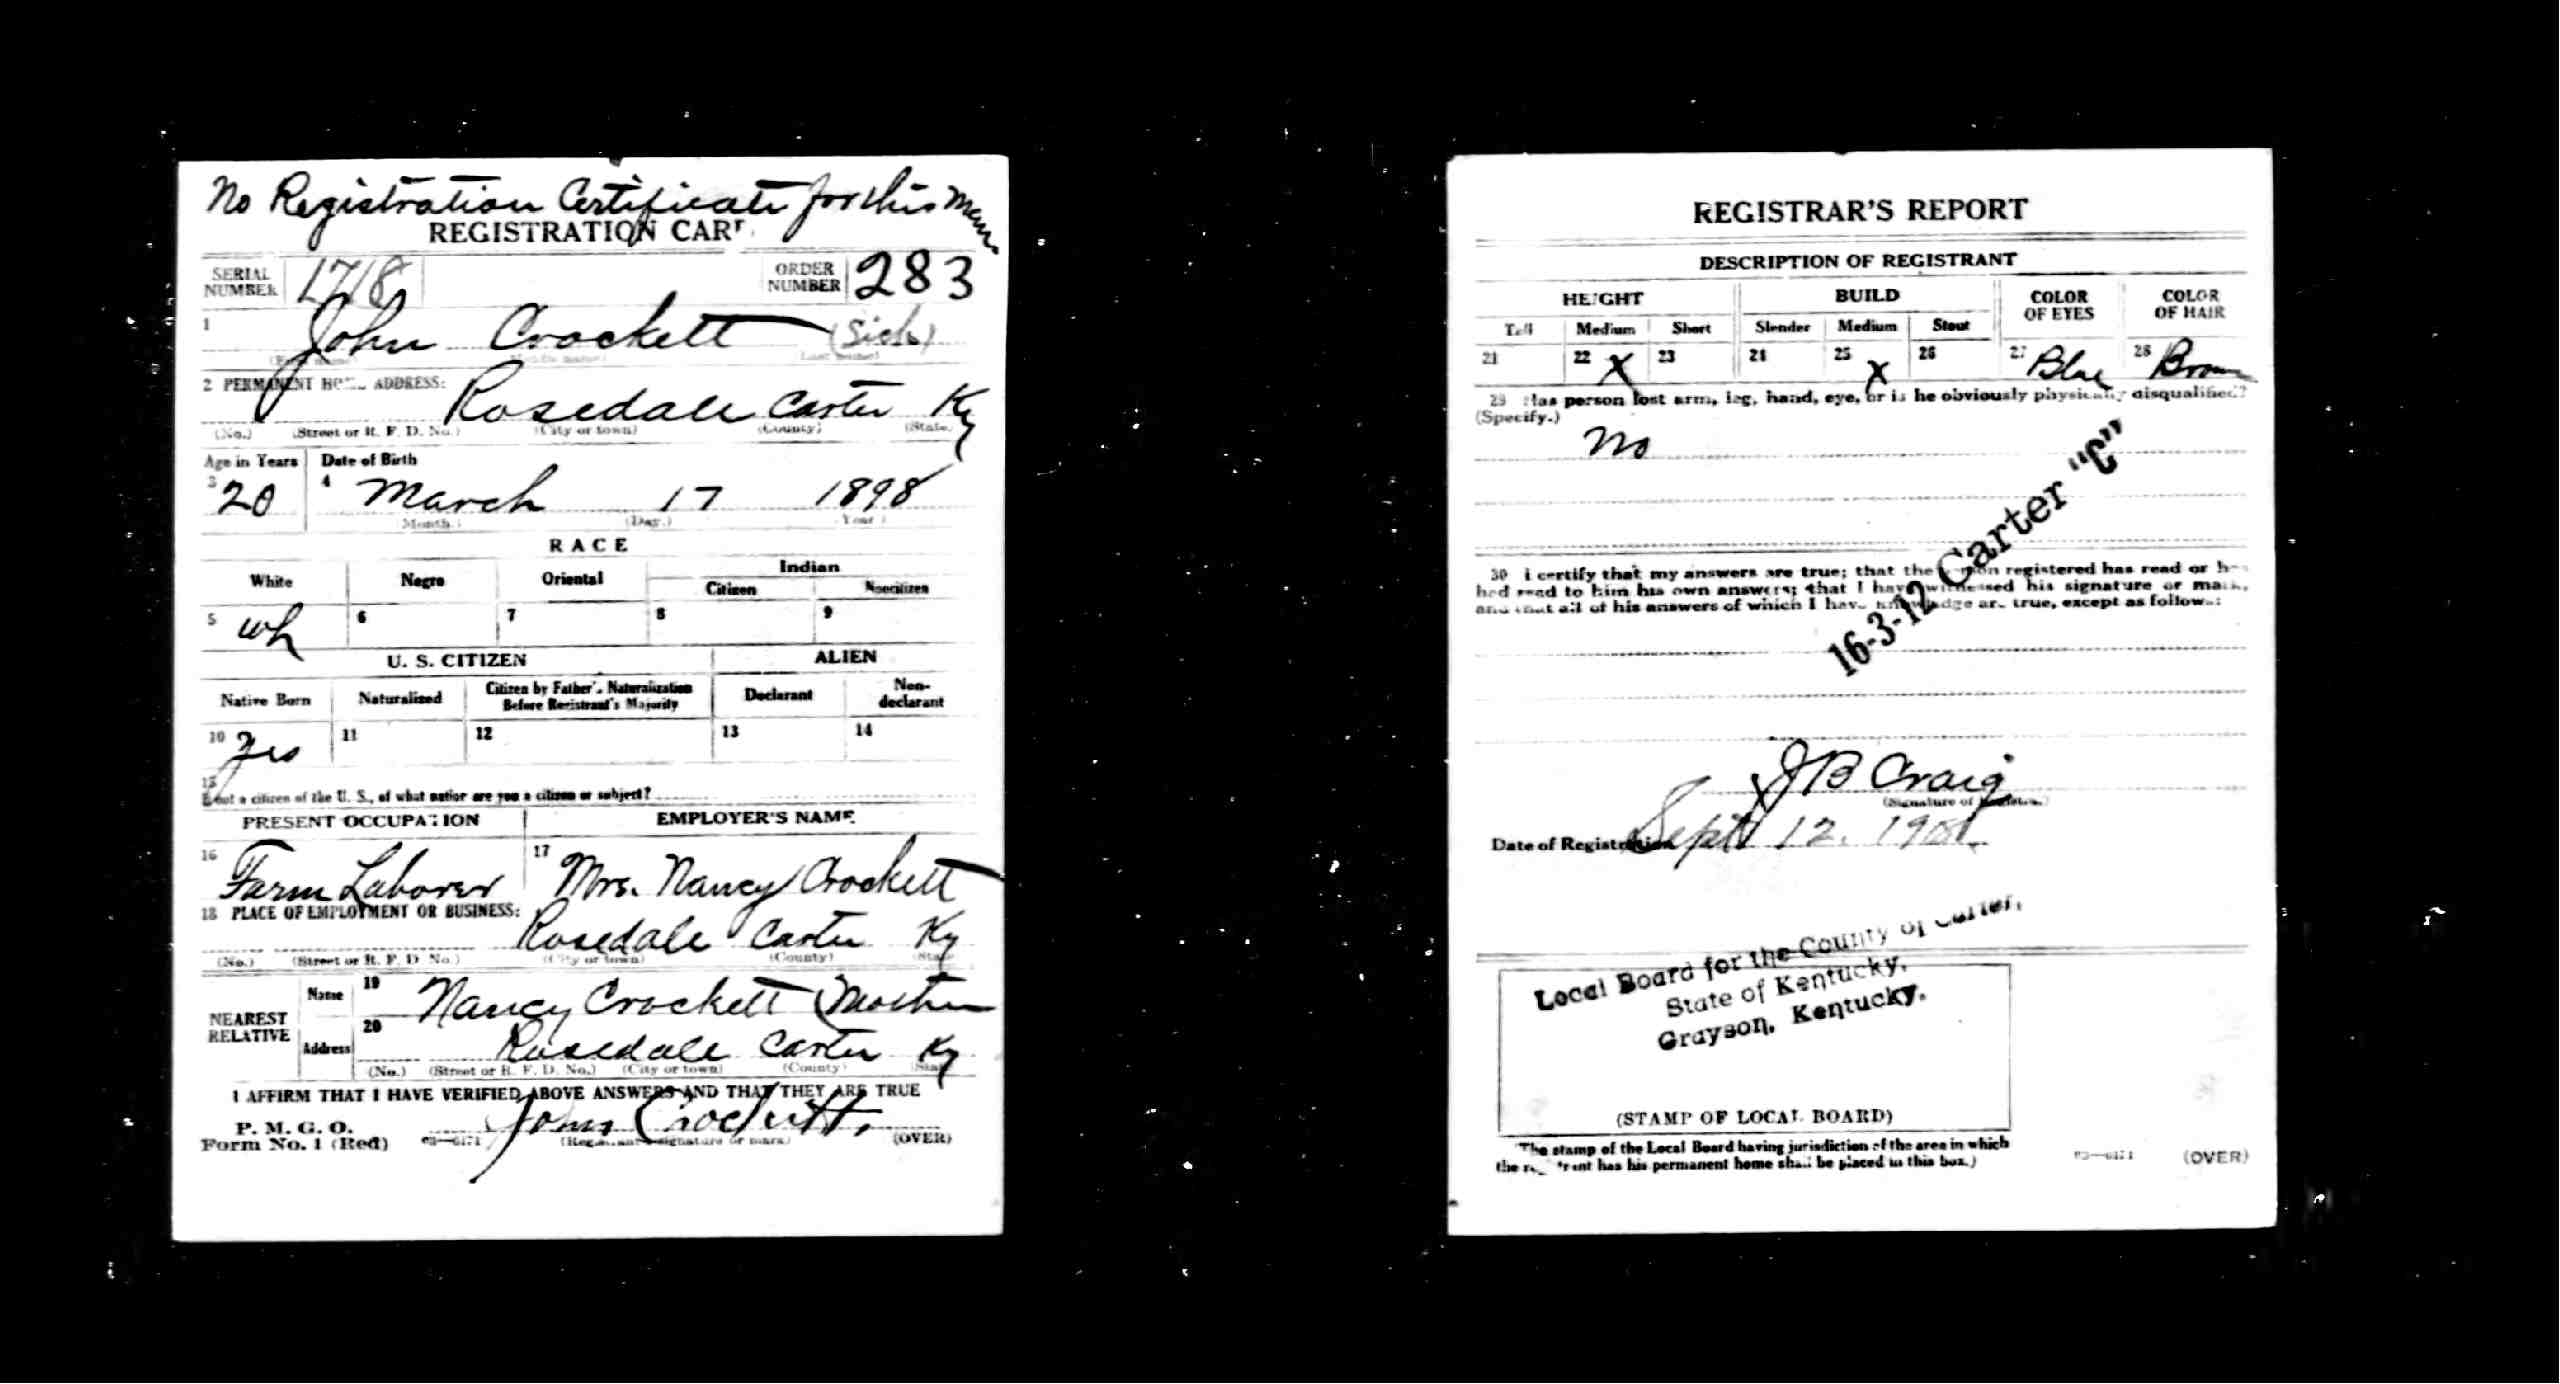 No Registration Certificate for this Man
REGISTRATION CARD
SERIAL NUMBER 1718 ORDER NUMBER 283
1 John Crockett (Sick)
(First name) (Middle name) (Last name)
2 PERMANENT HOME ADDRESS:
Rosedale Carter Ky
(No.) (Street or R. F. D. No.) (City or town) (County) (State)
Age in Years Date of Birth
3 20 4 March 17 1898
(Month.) (Day.) (Year.)
RACE
White Negro Oriental Indian
Citizen Noncitizen
5 wh 6 7 8 9
U. S. CITIZEN ALIEN
Native Born Naturalized Citizen by Father's Naturalization Before Registrant's Majority Declarant Non-declarant
10 Yes 11 12 13 14
15
If not a citizen of the U. S., of what nation are you a citizen or subject?
PRESENT OCCUPATION EMPLOYER'S NAME
16 Farm Laborer 17 Mrs. Nancy Crockett
18 PLACE OF EMPLOYMENT OR BUSINESS:
Rosedale Carter Ky
(No.) (Street or R. F. D. No.) (City or town) (County) (State)
NEAREST RELATIVE
Name 19 Nancy Crockett (Mother
Address 20 Rosedale Carter Ky
(No.) (Street or R. F. D. No.) (City or town) (County) (State)
I AFFIRM THAT I HAVE VERIFIED ABOVE ANSWERS AND THAT THEY ARE TRUE
P. M. G. O.
Form No. 1 (Red) 03—6171 John Crockett
(Registrant's signature or mark) (OVER)
REGISTRAR'S REPORT
DESCRIPTION OF REGISTRANT
HEIGHT BUILD COLOR OF EYES COLOR OF HAIR
Tall Medium Short Slender Medium Stout
21 22 X 23 24 25 X 26 27 Blue 28 Brown
29 Has person lost arm, leg, hand, eye, or is he obviously physically disqualified?
(Specify.)
No
30 I certify that my answers are true; that the person registered has read or has
had read to him his own answers; that I have witnessed his signature or mark,
and that all of his answers of which I have knowledge are true, except as follows:
16-3-12 Carter "C"
J B Craig
(Signature of Registrar)
Date of Registration Sept 12.
Local Board for the County of Carter,
State of Kentucky,
Grayson, Kentucky.
(STAMP OF LOCAL BOARD)
(The stamp of the Local Board having jurisdiction of the area in which
the registrant has his permanent home shall be placed in this box.)
03—6171 (OVER)